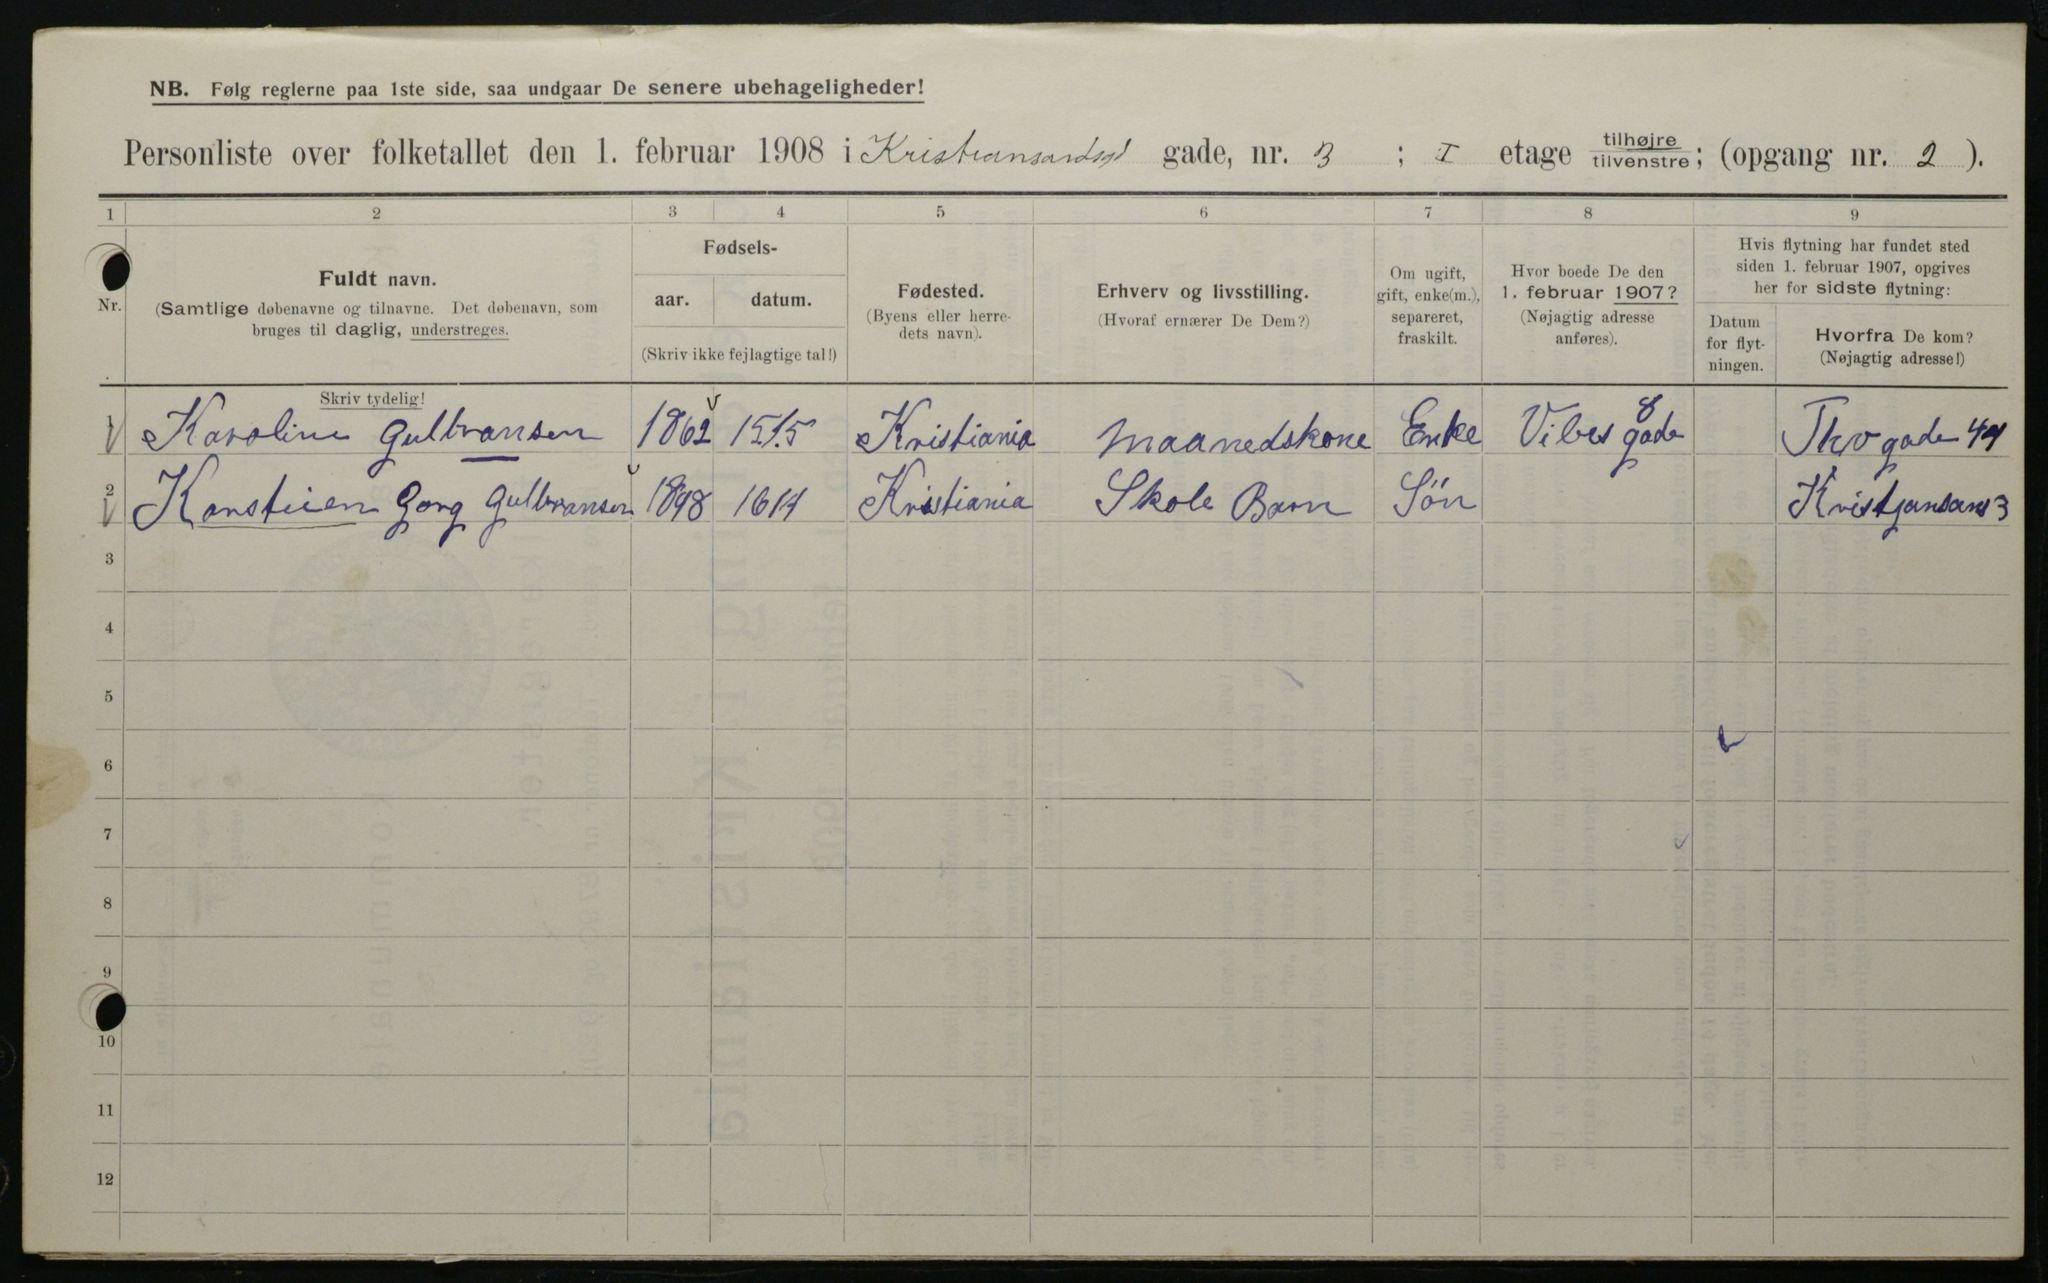 NB. Følg reglerne paa 1ste side, saa undgaar De senere ubehageligheder!
Personliste over folketallet den 1. februar 1908 i Kristiansandsgd gade, nr. 3 ; I etage tilhøjre tilvenstre; (opgang nr. 2 ).
1 2 3 4 5 6 7 8 9
Nr.
Fuldt navn.
(Samtlige døbenavne og tilnavne. Det døbenavn, som
bruges til daglig, understreges.
Skriv tydelig!
Fødsels-
aar. datum.
(Skriv ikke fejlagtige tal!)
Fødested.
(Byens eller herre-
dets navn).
Erhverv og livsstilling.
(Hvoraf ernærer De Dem?)
Om ugift,
gift, enke(m.),
separeret,
fraskilt.
Hvor boede De den
1. februar 1907?
(Nøjagtig adresse
anføres).
Hvis flytning har fundet sted
siden 1. februar 1907, opgives
her for sidste flytning:
Datum
for flyt-
ningen.
Hvorfra De kom?
(Nøjagtig adresse!)
1 Karoline Gulbransen 1862 15/5 Kristiania Maanedskone Enke Vibes gade 8 Thv gade 44
2 Karstien Gorg Gulbransen 1898 16/4 Kristiania Skole Barn Søn Kristjansans 3
3
4
5
6
7
8
9
10
11
12